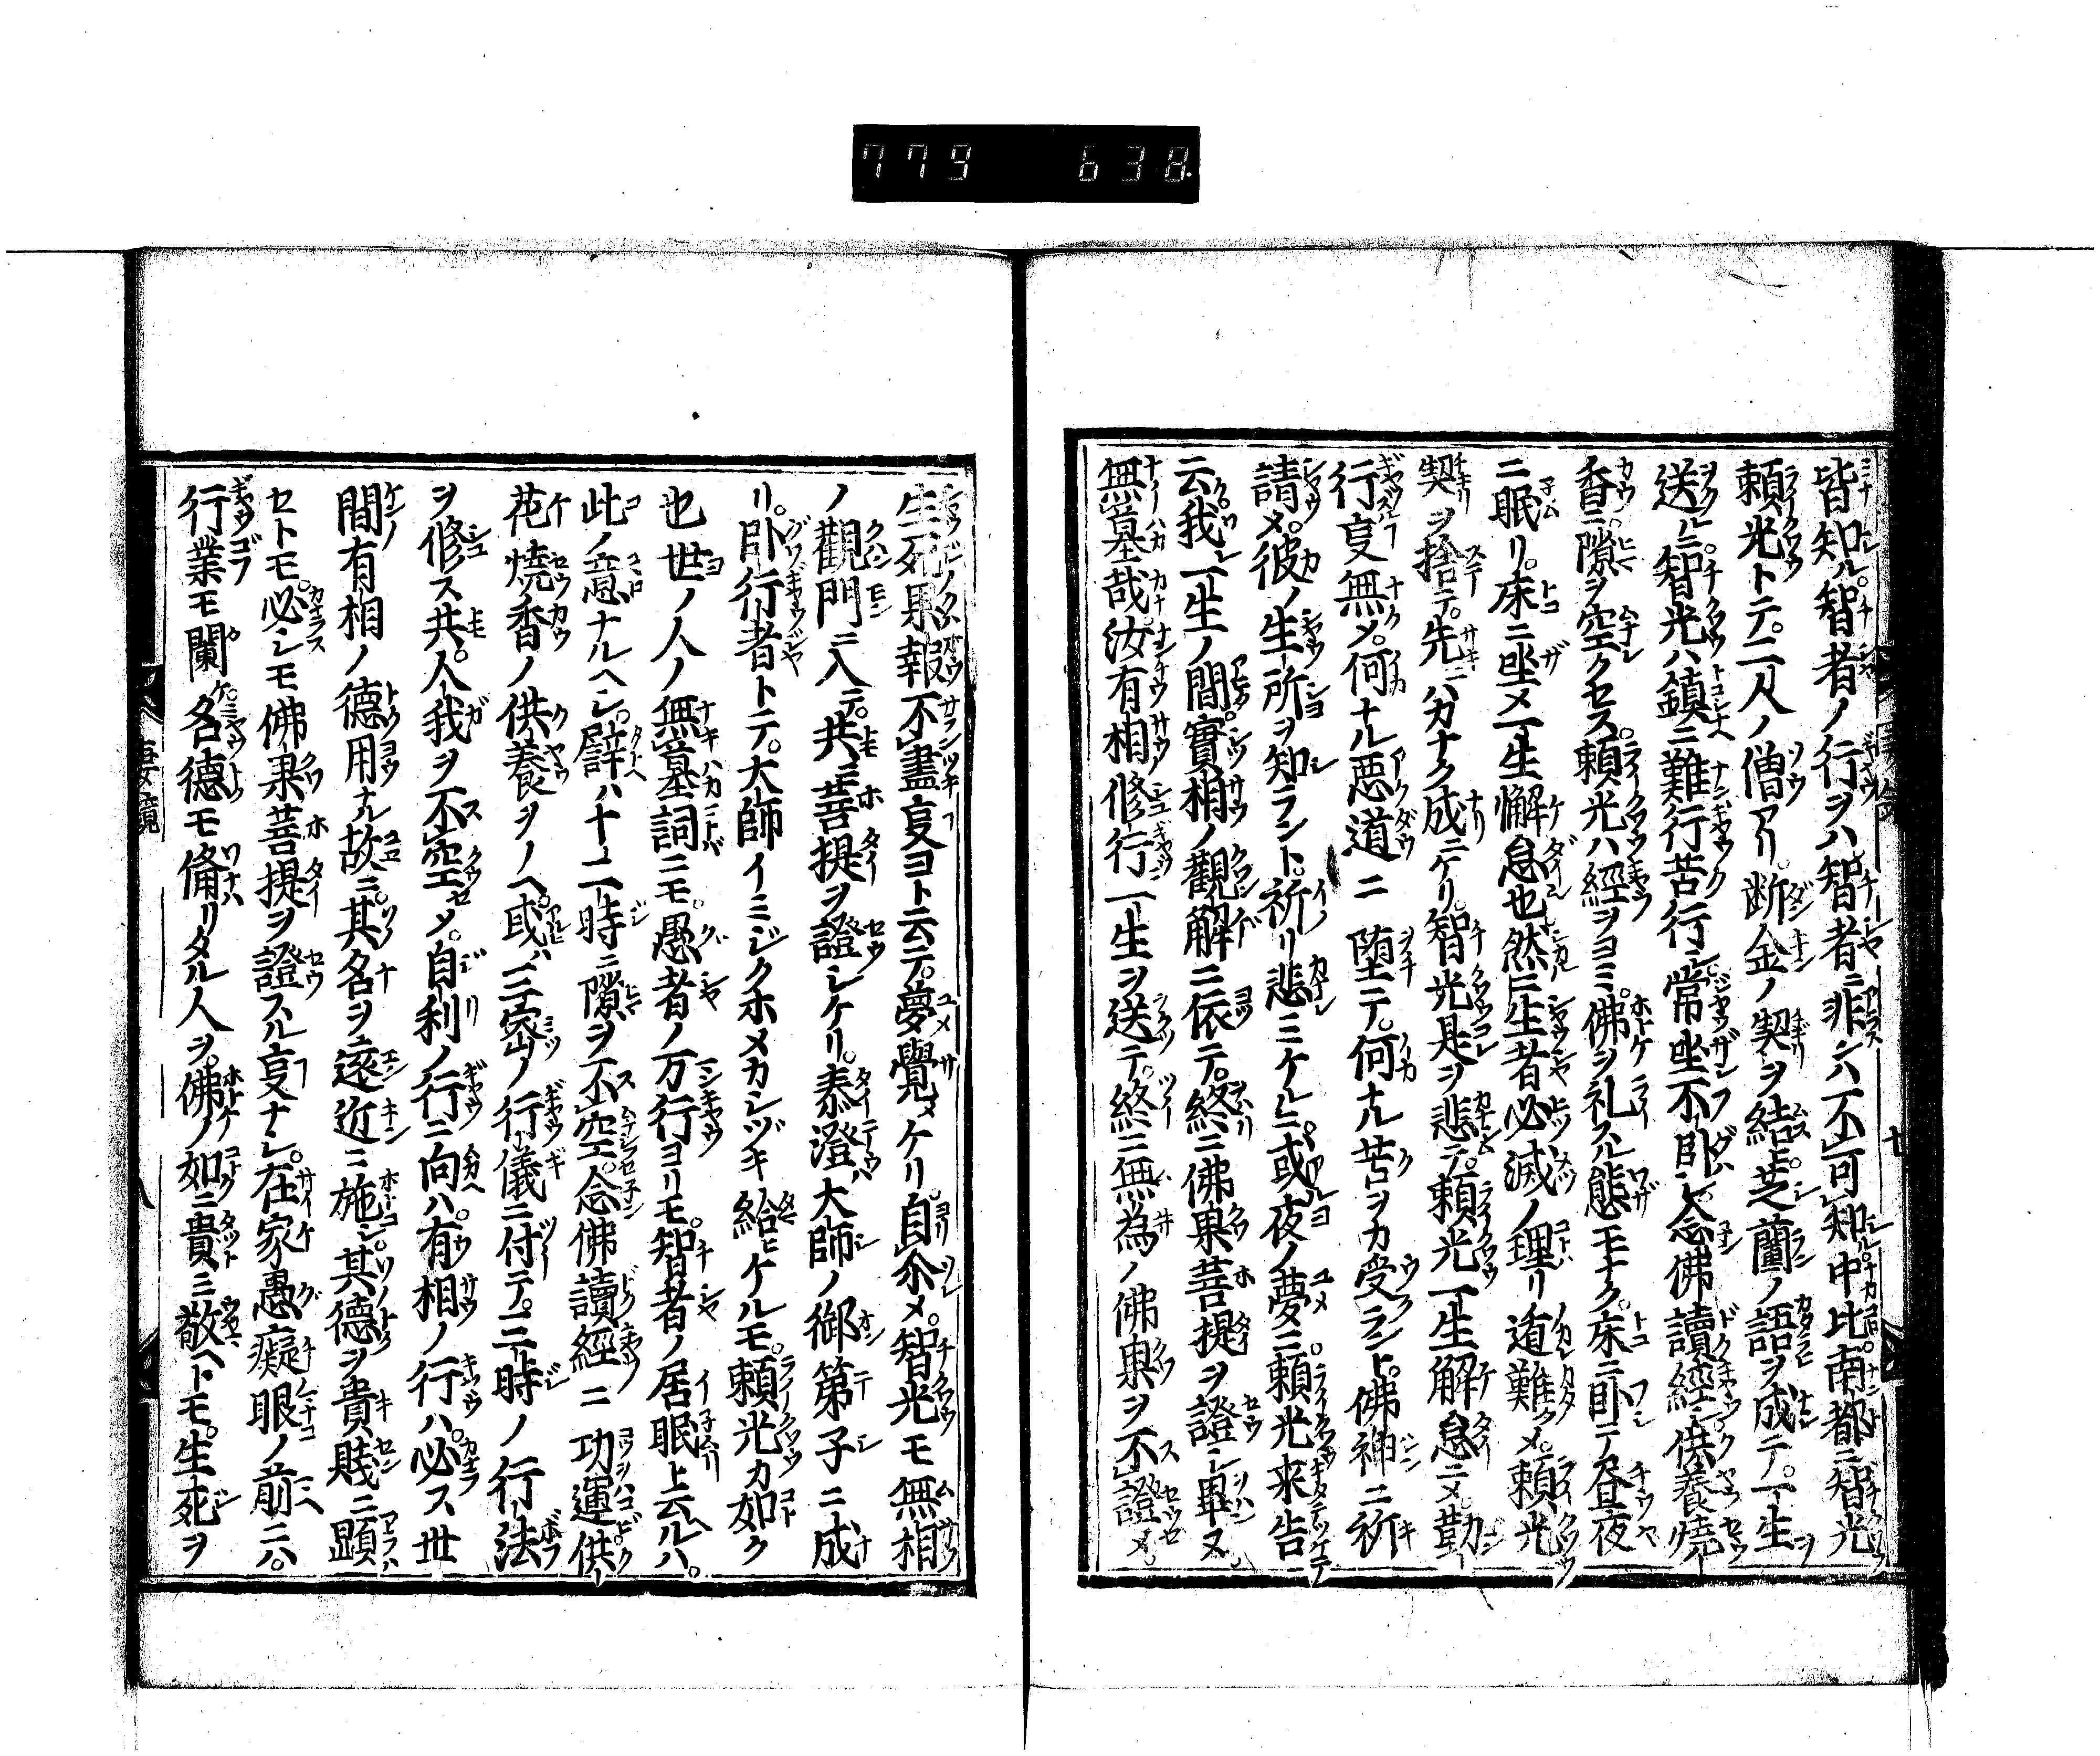 779 638.
皆知ル智者ノ行ヲハ智者ニ非ンハ不可知中比南都ニ智光
頼光トテ二人ノ僧アリ断金ノ契ヲ結芝蘭ノ語ヲ成テ一生ヲ
送ルニ智光ハ鎮ニ難行苦行シ常坐不卧シ念佛讀經ニ供養燒
香ニ隙ヲ空クセス頼光ハ經ヲヨミ佛ヲ礼スル態モナク床ニ卧テ昼夜
ニ眠リ床ニ坐メ一生懈怠也然ニ生者必滅ノ理リ遁難クメ頼光
契ヲ捨テ先ニハカナク成ニケリ智光是ヲ悲テ頼光一生觧怠ニメ勤
行亊無メ何ナル悪道ニ堕テ何ナル苦ヲカ受ラント佛神ニ祈
請メ彼ノ生所ヲ知ラント祈リ悲ミケルニ或夜ノ夢ニ頼光来告
云我一生ノ間實相ノ觀解ニ依テ終ニ佛果菩提ヲ證シ畢ヌ
無墓哉汝有相修行一生ヲ送テ終ニ無為ノ佛果ヲ不證メ
生死果報不盡亊ヨト云テ夢覺メケリ自尒メ智光モ無相
ノ觀門ニ入テ共ニ菩提ヲ證シケリ泰澄大師ノ御第子ニ成
リ卧行者トテ大師イミジクホメカシヅキ給ヒケルモ頼光カ如ク
也世ノ人ノ無墓詞ニモ愚者ノ万行ヨリモ智者ノ居眠上云ルハ
此ノ意ナルヘシ譬ハ十二時ニ隙ヲ不空念佛讀經ニ功運供
花燒香ノ供養ヲノヘ或ハ三密ノ行儀ニ付テ三時ノ行法
ヲ修ス共人我ヲ不空メ自利ノ行ニ向ハ有相ノ行ハ必ス世
間有相ノ德用ナル故ニ其名ヲ遠近ニ施シ其德ヲ貴賤ニ顕
セトモ必シモ佛果菩提ヲ證スル亊ナシ在家愚癡眼ノ前ニハ
行業モ闌ケ名德モ備リタル人ヲ佛ノ如ニ貴ミ敬ヘトモ生死ヲ
妻鏡